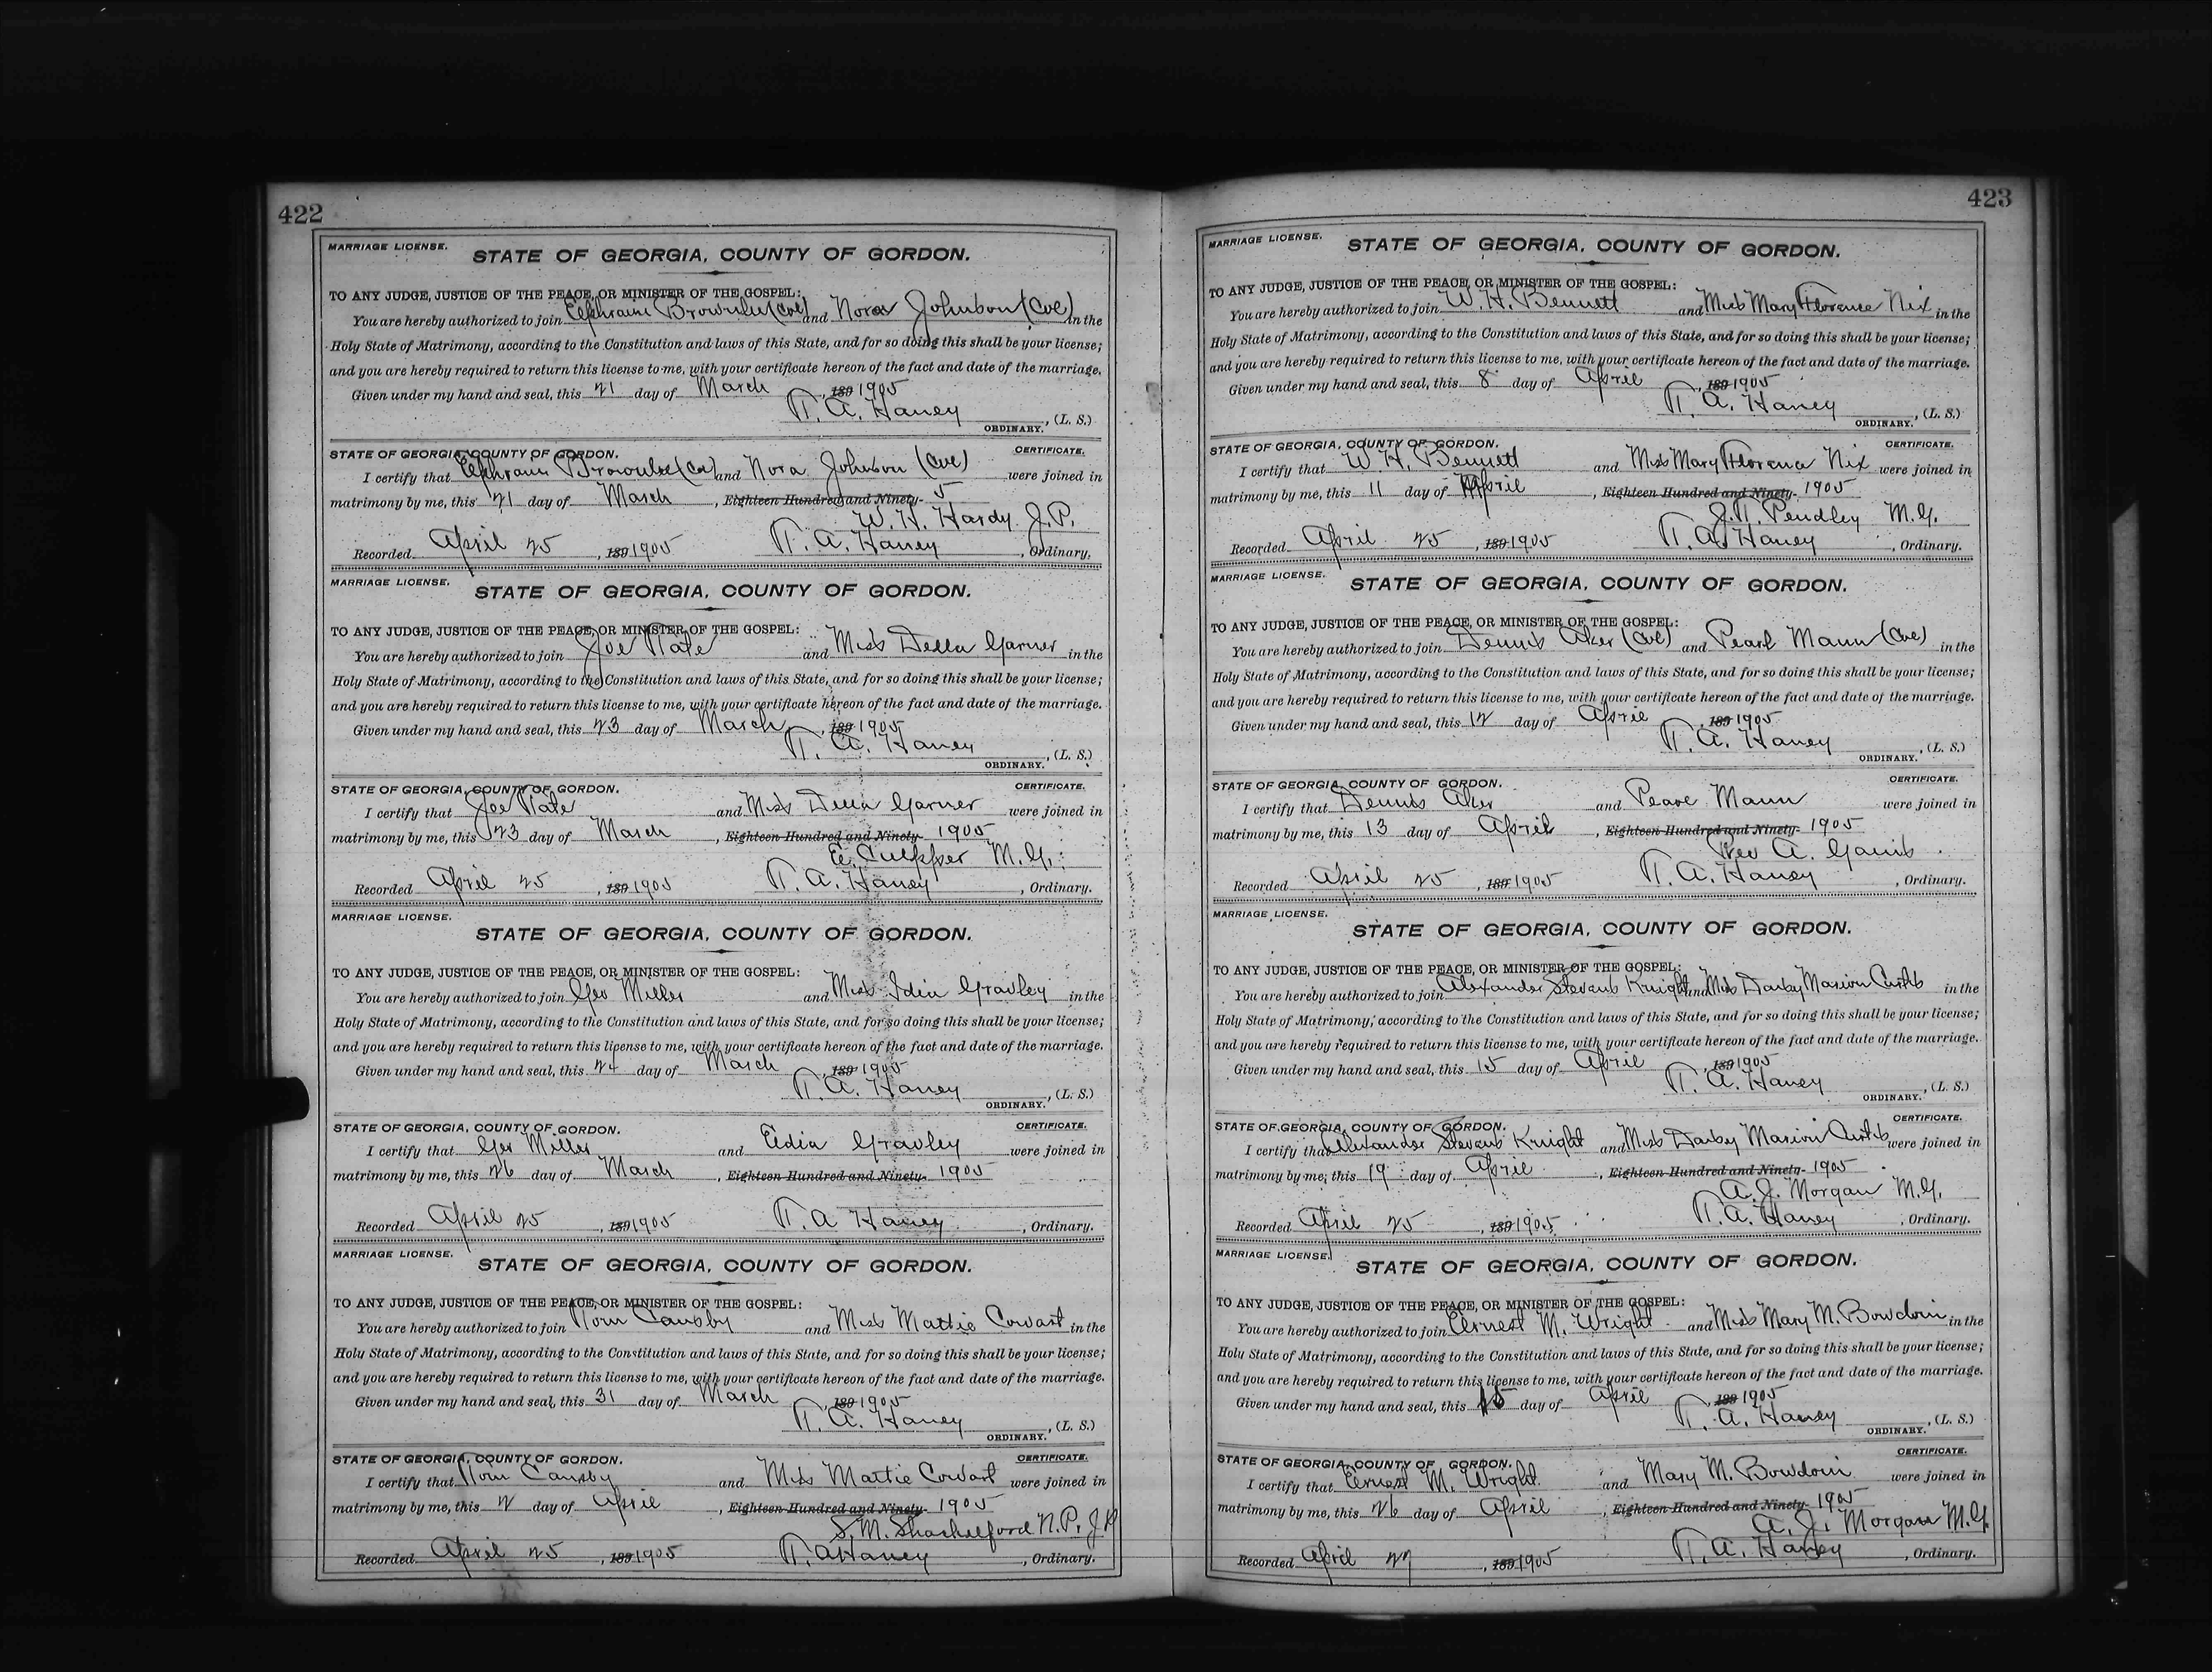 422
MARRIAGE LICENSE.
STATE OF GEORGIA, COUNTY OF GORDON.
TO ANY JUDGE, JUSTICE OF THE PEACE, OR MINISTER OF THE GOSPEL:
You are hereby authorized to join Ephraim Brownlee (Col) and Nora Johnson (Col) in the
Holy State of Matrimony, according to the Constitution and laws of this State, and for so doing this shall be your license;
and you are hereby required to return this license to me, with your certificate hereon of the fact and date of the marriage.
Given under my hand and seal, this 21 day of March, 189 1905
T. A. Haney, (L. S.)
ORDINARY.
STATE OF GEORGIA, COUNTY OF GORDON. CERTIFICATE.
I certify that Ephraim Brownlee (Col) and Nora Johnson (Col) were joined in
matrimony by me, this 21 day of March, Eighteen Hundred and Ninety- 5
W. H. Hardy J.P.
Recorded April 25, 189 1905 T. A. Haney, Ordinary.
MARRIAGE LICENSE.
STATE OF GEORGIA, COUNTY OF GORDON.
TO ANY JUDGE, JUSTICE OF THE PEACE, OR MINISTER OF THE GOSPEL:
You are hereby authorized to join Joe Tate and Miss Della Garner in the
Holy State of Matrimony, according to the Constitution and laws of this State, and for so doing this shall be your license;
and you are hereby required to return this license to me, with your certificate hereon of the fact and date of the marriage.
Given under my hand and seal, this 23 day of March, 189 1905
T. A. Haney, (L. S.)
ORDINARY.
STATE OF GEORGIA, COUNTY OF GORDON. CERTIFICATE.
I certify that Joe Tate and Miss Della Garner were joined in
matrimony by me, this 23 day of March, Eighteen Hundred and Ninety- 1905
E. Culpper M.G.
Recorded April 25, 189 1905 T. A. Haney, Ordinary.
MARRIAGE LICENSE.
STATE OF GEORGIA, COUNTY OF GORDON.
TO ANY JUDGE, JUSTICE OF THE PEACE, OR MINISTER OF THE GOSPEL:
You are hereby authorized to join Geo Miller and Miss Idia Gravley in the
Holy State of Matrimony, according to the Constitution and laws of this State, and for so doing this shall be your license;
and you are hereby required to return this license to me, with your certificate hereon of the fact and date of the marriage.
Given under my hand and seal, this 24 day of March, 189 1905
T. A. Haney, (L. S.)
ORDINARY.
STATE OF GEORGIA, COUNTY OF GORDON. CERTIFICATE.
I certify that Geo Miller and Eidia Gravley were joined in
matrimony by me, this 26 day of March, Eighteen Hundred and Ninety- 1905
Recorded April 25, 189 1905 T. A Haney, Ordinary.
MARRIAGE LICENSE.
STATE OF GEORGIA, COUNTY OF GORDON.
TO ANY JUDGE, JUSTICE OF THE PEACE, OR MINISTER OF THE GOSPEL:
You are hereby authorized to join Tom Cansby and Miss Mattie Cowart in the
Holy State of Matrimony, according to the Constitution and laws of this State, and for so doing this shall be your license;
and you are hereby required to return this license to me, with your certificate hereon of the fact and date of the marriage.
Given under my hand and seal, this 31 day of March, 189 1905
T. A. Haney, (L. S.)
ORDINARY.
STATE OF GEORGIA, COUNTY OF GORDON. CERTIFICATE.
I certify that Tom Cansby and Miss Mattie Cowart were joined in
matrimony by me, this 2 day of April, Eighteen Hundred and Ninety- 1905
S. M. Shackelford N.P. J.P
Recorded April 25, 189 1905 T. A Haney, Ordinary.
423
MARRIAGE LICENSE.
STATE OF GEORGIA, COUNTY OF GORDON.
TO ANY JUDGE, JUSTICE OF THE PEACE, OR MINISTER OF THE GOSPEL:
You are hereby authorized to join W. H. Bennett and Miss Mary Florence Nix in the
Holy State of Matrimony, according to the Constitution and laws of this State, and for so doing this shall be your license;
and you are hereby required to return this license to me, with your certificate hereon of the fact and date of the marriage.
Given under my hand and seal, this 8 day of April, 189 1905
T. A. Haney, (L. S.)
ORDINARY.
STATE OF GEORGIA, COUNTY OF GORDON. CERTIFICATE.
I certify that W. H. Bennett and Miss Mary Florence Nix were joined in
matrimony by me, this 11 day of April, Eighteen Hundred and Ninety- 1905
J. T. Pendley M.G.
Recorded April 25, 189 1905 T. A. Haney, Ordinary.
MARRIAGE LICENSE.
STATE OF GEORGIA, COUNTY OF GORDON.
TO ANY JUDGE, JUSTICE OF THE PEACE, OR MINISTER OF THE GOSPEL:
You are hereby authorized to join Dennis Aker (Col) and Pearl Mann (Col) in the
Holy State of Matrimony, according to the Constitution and laws of this State, and for so doing this shall be your license;
and you are hereby required to return this license to me, with your certificate hereon of the fact and date of the marriage.
Given under my hand and seal, this 12 day of April, 189 1905
T. A. Haney, (L. S.)
ORDINARY.
STATE OF GEORGIA, COUNTY OF GORDON. CERTIFICATE.
I certify that Dennis Aker and Pearl Mann were joined in
matrimony by me, this 13 day of April, Eighteen Hundred and Ninety- 1905
Rev A.
Recorded April 25, 189 1905 T. A. Haney, Ordinary.
MARRIAGE LICENSE.
STATE OF GEORGIA, COUNTY OF GORDON.
TO ANY JUDGE, JUSTICE OF THE PEACE, OR MINISTER OF THE GOSPEL:
You are hereby authorized to join Alexander Stevens Knight and Miss Darby Marion Curtis in the
Holy State of Matrimony, according to the Constitution and laws of this State, and for so doing this shall be your license;
and you are hereby required to return this license to me, with your certificate hereon of the fact and date of the marriage.
Given under my hand and seal, this 15 day of April, 189 1905
T. A. Haney, (L. S.)
ORDINARY.
STATE OF GEORGIA, COUNTY OF GORDON. CERTIFICATE.
I certify that Alexander Stevens Knight and Miss Darby Marion Curtis were joined in
matrimony by me, this 19 day of April, Eighteen Hundred and Ninety- 1905
A. J. Morgan M.G.
Recorded April 25, 189 1905 T. A. Haney, Ordinary.
MARRIAGE LICENSE.
STATE OF GEORGIA, COUNTY OF GORDON.
TO ANY JUDGE, JUSTICE OF THE PEACE, OR MINISTER OF THE GOSPEL:
You are hereby authorized to join Ernest M. Wright and Miss Mary M. Bowdoin in the
Holy State of Matrimony, according to the Constitution and laws of this State, and for so doing this shall be your license;
and you are hereby required to return this license to me, with your certificate hereon of the fact and date of the marriage.
Given under my hand and seal, this 15 day of April, 189 1905
T. A. Haney, (L. S.)
ORDINARY.
STATE OF GEORGIA, COUNTY OF GORDON. CERTIFICATE.
I certify that Ernest M. Wright and Mary M. Bowdoin were joined in
matrimony by me, this 26 day of April, Eighteen Hundred and Ninety- 1905
A. J. Morgan M.G.
Recorded April 27, 189 1905 T. A. Haney, Ordinary.